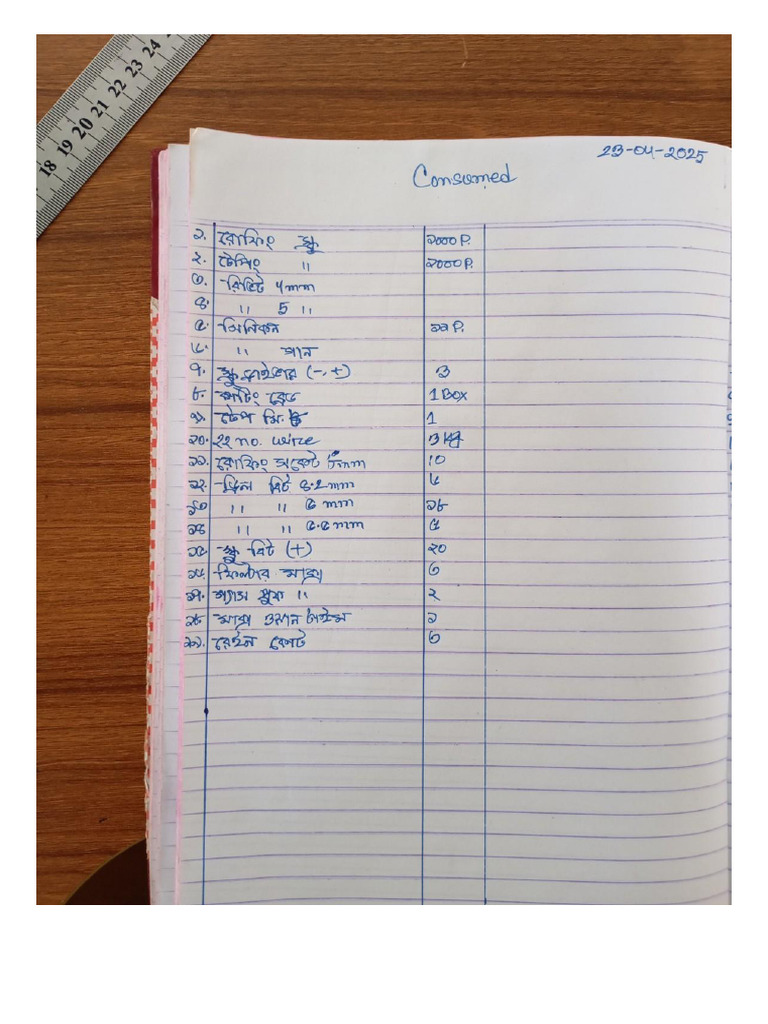 18 19 20 21 22 23 24
23-04-2025
Consumed
১. রোফিং স্ক্রু ১০০০ P.
২. টেপিং " ২০০০ P.
৩. রিভিট 4mm
৪. " 5 "
৫. সিলিকন ১১ P.
৬. " গান
৭. স্ক্রু ড্রাইভার (-,+) 3
৮. কাটিং ব্লেড 1 Box
৯. টেপ মি. 1
১০. 22 no. wire 3 Kg
১১. রোফিং সকেট mm 10
১২. ড্রিল বিট ৪.2mm ৬
১৩ " " ৫ mm ১৮
১৪ " " ৫.৫ mm ৫
১৫. স্ক্রু বিট (+) ২০
১৬. ফিল্টার মাস্ক ৩
১৭. গ্যাস মুখ " ২
১৮ মাস্ক ওয়ান টাইম ১
১৯. রেইন কোট ৩